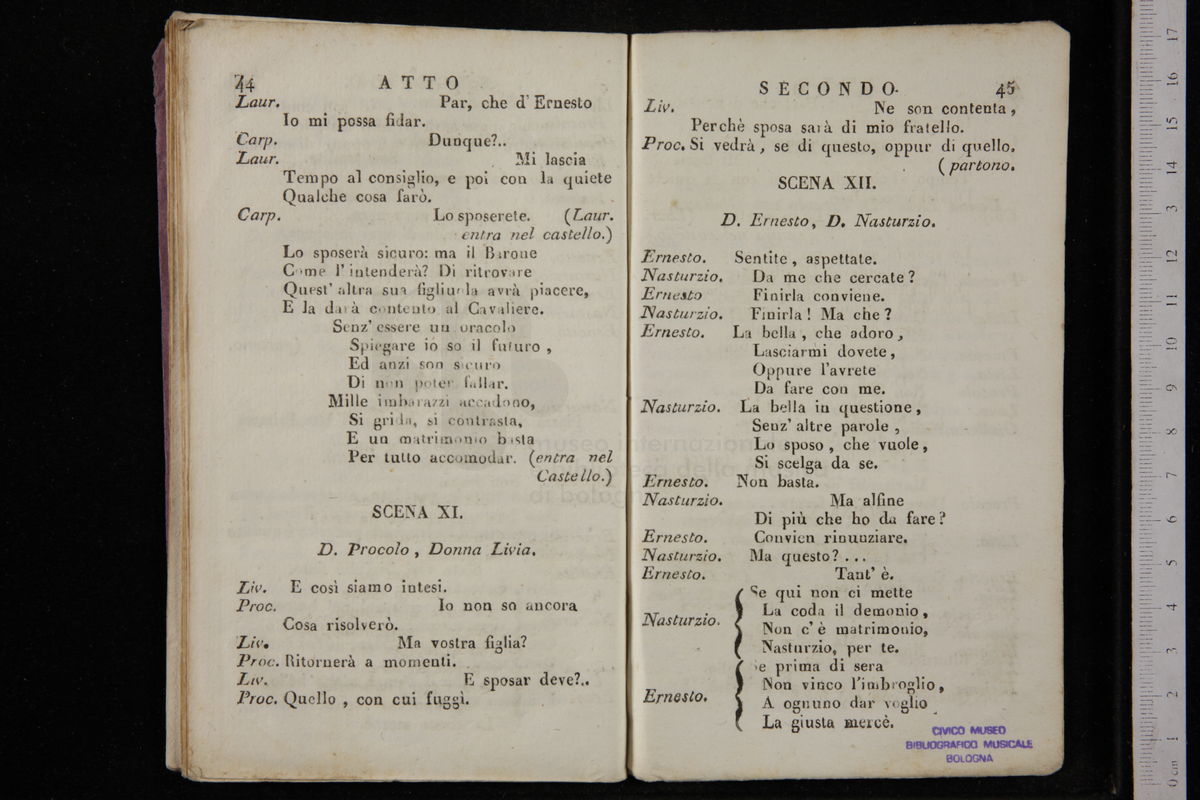 44 ATTO
Laur. Par, che d' Ernesto
Io mi possa fidar.
Carp. Dunque?..
Laur. Mi lascia
Tempo al consiglio, e poi con la quiete
Qualche cosa farò.
Carp. Lo sposerete. (Laur.
entra nel castello.)
Lo sposerà sicuro: ma il Barone
Come l' intenderà? Di ritrovare
Quest' altra sua figliuola avrà piacere,
E la darà contento al Cavaliere.
Senz' essere un oracolo
Spiegare io so il futuro ,
Ed anzi son sicuro
Di non poter fallar.
Mille imbarazzi accadono,
Si grida, si contrasta,
E un matrimonio basta
Per tutto accomodar. (entra nel
Castello.)
SCENA XI.
D. Procolo , Donna Livia.
Liv. E così siamo intesi.
Proc. Io non so ancora
Cosa risolverò.
Liv. Ma vostra figlia?
Proc. Ritornerà a momenti.
Liv. E sposar deve?..
Proc. Quello , con cui fuggì.
SECONDO. 45
Liv. Ne son contenta ,
Perchè sposa sarà di mio fratello.
Proc. Si vedrà , se di questo, oppur di quello.
( partono.
SCENA XII.
D. Ernesto, D. Nasturzio.
Ernesto. Sentite , aspettate.
Nasturzio. Da me che cercate ?
Ernesto Finirla conviene.
Nasturzio. Finirla ! Ma che ?
Ernesto. La bella , che adoro ,
Lasciarmi dovete ,
Oppure l'avrete
Da fare con me.
Nasturzio. La bella in questione ,
Senz' altre parole ,
Lo sposo , che vuole ,
Si scelga da se.
Ernesto. Non basta.
Nasturzio. Ma alfine
Di più che ho da fare ?
Ernesto. Convien rinunziare.
Nasturzio. Ma questo ? . . .
Ernesto. Tant' è.
Se qui non ci mette
La coda il demonio ,
Nasturzio. Non c' è matrimonio,
Nasturzio, per te.
Se prima di sera
Non vinco l'imbroglio ,
Ernesto. A ognuno dar voglio
La giusta mercè.
CIVICO MUSEO
BIBLIOGRAFICO MUSICALE
BOLOGNA
museo internazionale
della
di bologna
0 cm 1 2 3 4 5 6 7 8 9 10 11 12 13 14 15 16 17